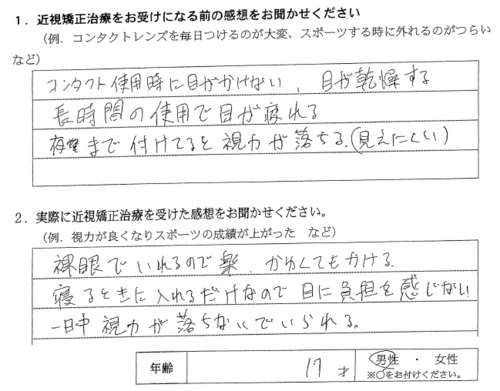 1．近視矯正治療をお受けになる前の感想をお聞かせください
（例．コンタクトレンズを毎日つけるのが大変、スポーツする時に外れるのがつらい
など）
コンタクト使用時に目がかけない、目が乾燥する
長時間の使用で目が疲れる
夜まで付けてると視力が落ちる.(見えにくい)
2．実際に近視矯正治療を受けた感想をお聞かせください。
（例．視力が良くなりスポーツの成績が上がった　など）
裸眼でいれるので楽．かゆくてもかける.
寝るときに入れるだけなので目に負担を感じない
一日中視力が落ちないでいられる。
年齢　17才　男性・女性
※○をお付けください。